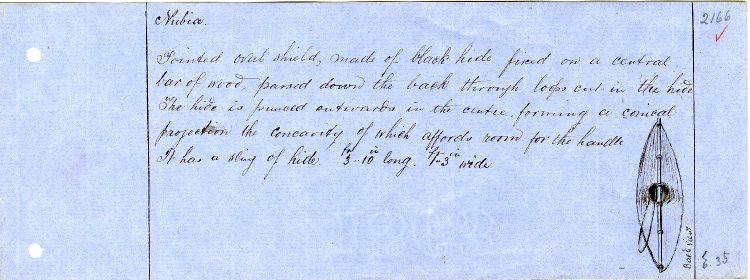 Nubia.
2166
Pointed oval shield, made of black hide fixed on a central
bar of wood, passed down the back through loops cut in the hide
The hide is punced outwards in the centre, forming a conical
projection the concavity of which affords room for the handle
It has a sling of hide. 3 ft - 10 in long. 1 ft - 3 in wide
Back view
E. 35